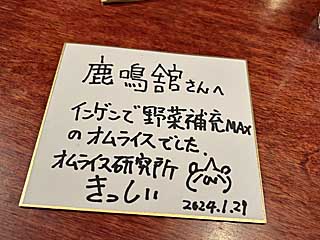 鹿鳴舘さんへ
インゲンで野菜補充MAX
のオムライスでした.
オムライス研究所
きっしい
2024.1.29